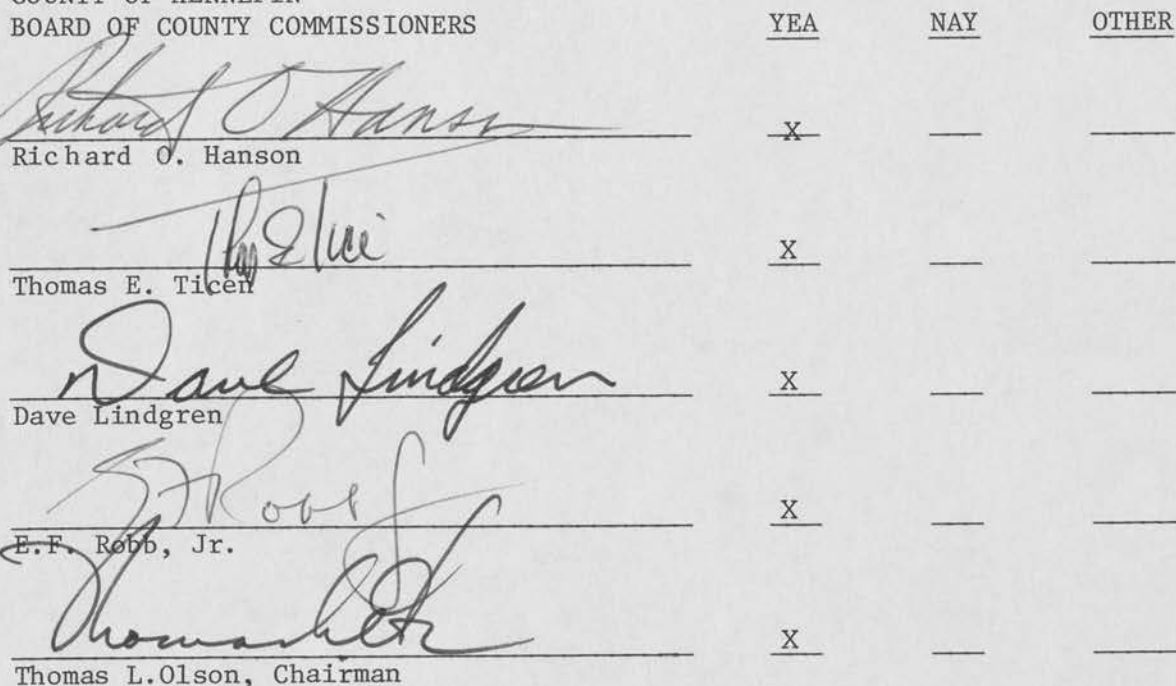 BOARD OF COUNTY COMMISSIONERS YEA NAY OTHER
Richard O Hanson X
Richard O. Hanson
X
Thomas E. Ticen
Dave Lindgren X
Dave Lindgren
E F Robb Jr X
E.F. Robb, Jr.
Thomas L X
Thomas L.Olson, Chairman